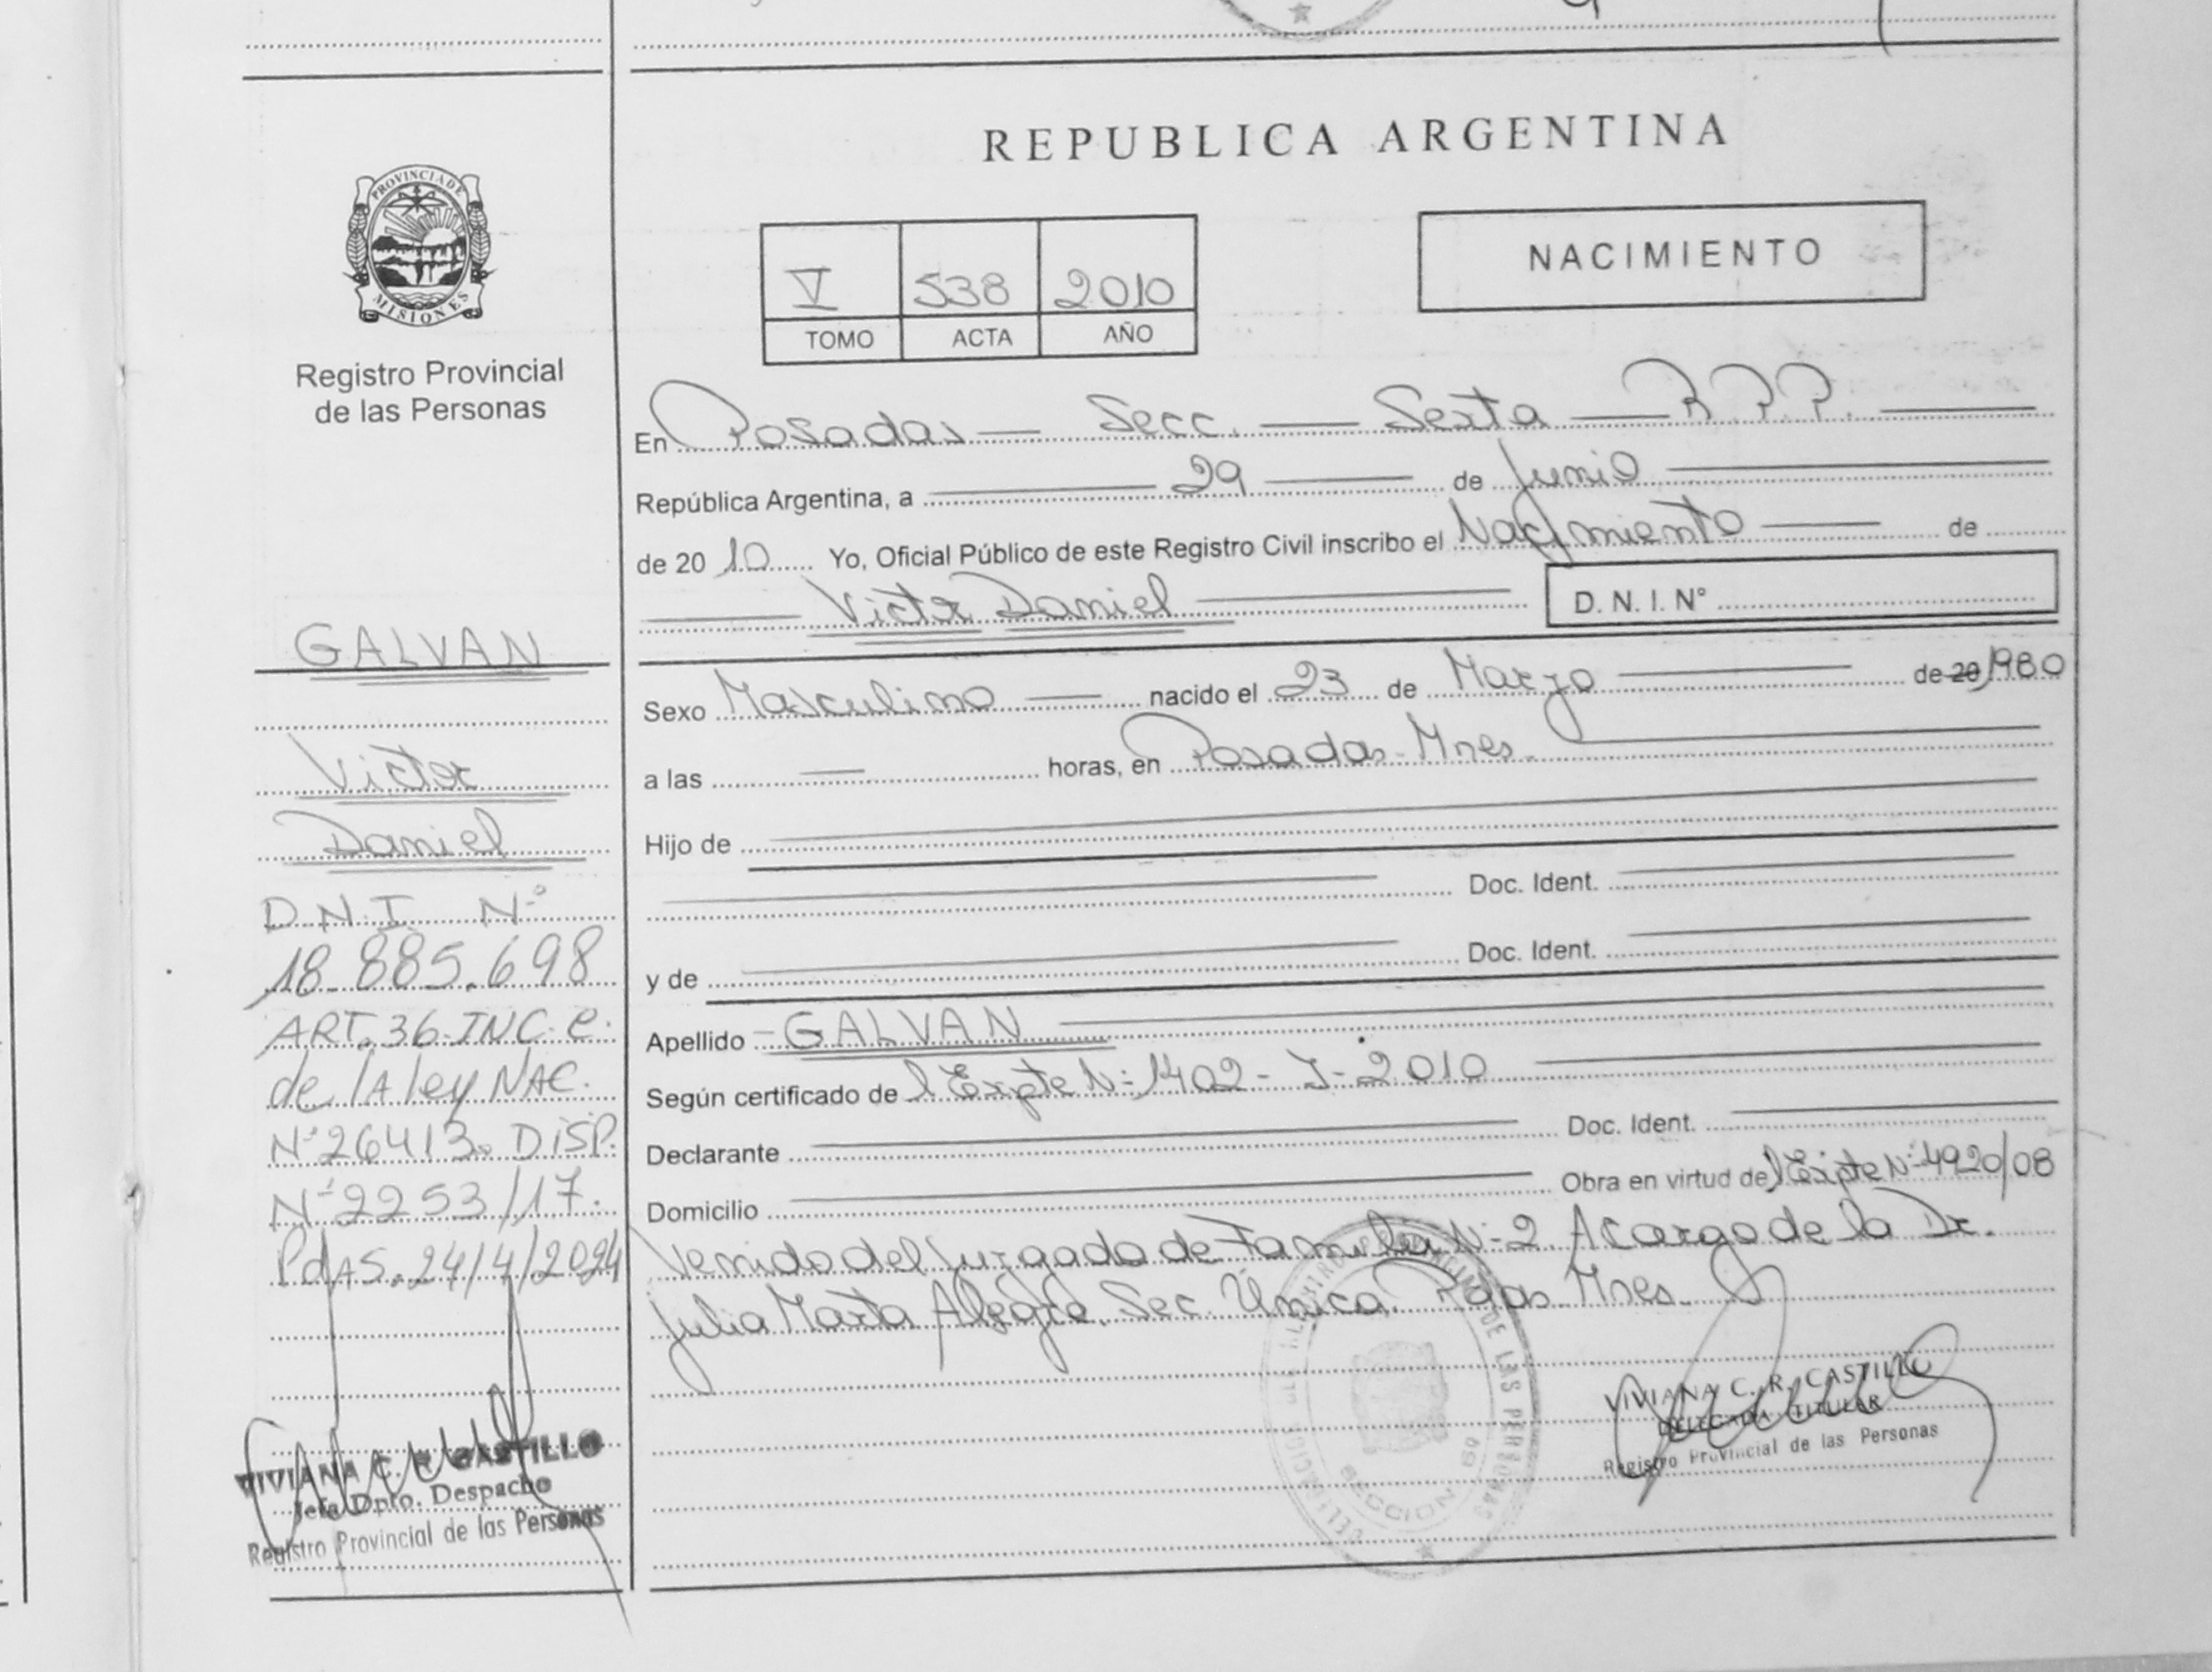 PROVINCIA DE
MISIONES
Registro Provincial
de las Personas
GALVAN
Victor
Daniel
D.N.I. Nº
18.885.698
ART. 36-INC. e.
de lA ley NAC.
Nº 26413. DISP.
Nº 2253/17.
PdAS. 24/4/2024
VIVIANA C. R. CASTILLO
Jefa Dpto. Despacho
Registro Provincial de las Personas
REPUBLICA ARGENTINA
V 538 2010
TOMO ACTA AÑO
NACIMIENTO
En Posadas — Secc. — Sexta — R.P.P. —
República Argentina, a — 29 — de Junio —
de 2010 Yo, Oficial Público de este Registro Civil inscribo el Nacimiento — de
— Victor Daniel — D. N. I. N°
Sexo Masculino — nacido el 23 de Marzo — de 20 1980
a las — horas, en Posadas - Mnes. —
Hijo de —
— Doc. Ident. —
y de — Doc. Ident. —
Apellido - GALVAN —
Según certificado de l Expte Nº 1402 - J - 2010 —
Declarante — Doc. Ident. —
Domicilio — Obra en virtud de l Expte Nº 4920/08
Venido del Juzgado de Familia Nº 2 A cargo de la Dr.
Julia Marta Alegre. Sec. Única. Pdas. Mnes.
DELEGACION REGISTRO PROVINCIAL DE LAS PERSONAS
SECCION 6º
VIVIANA C. R. CASTILLO
DELEGADA TITULAR
Registro Provincial de las Personas